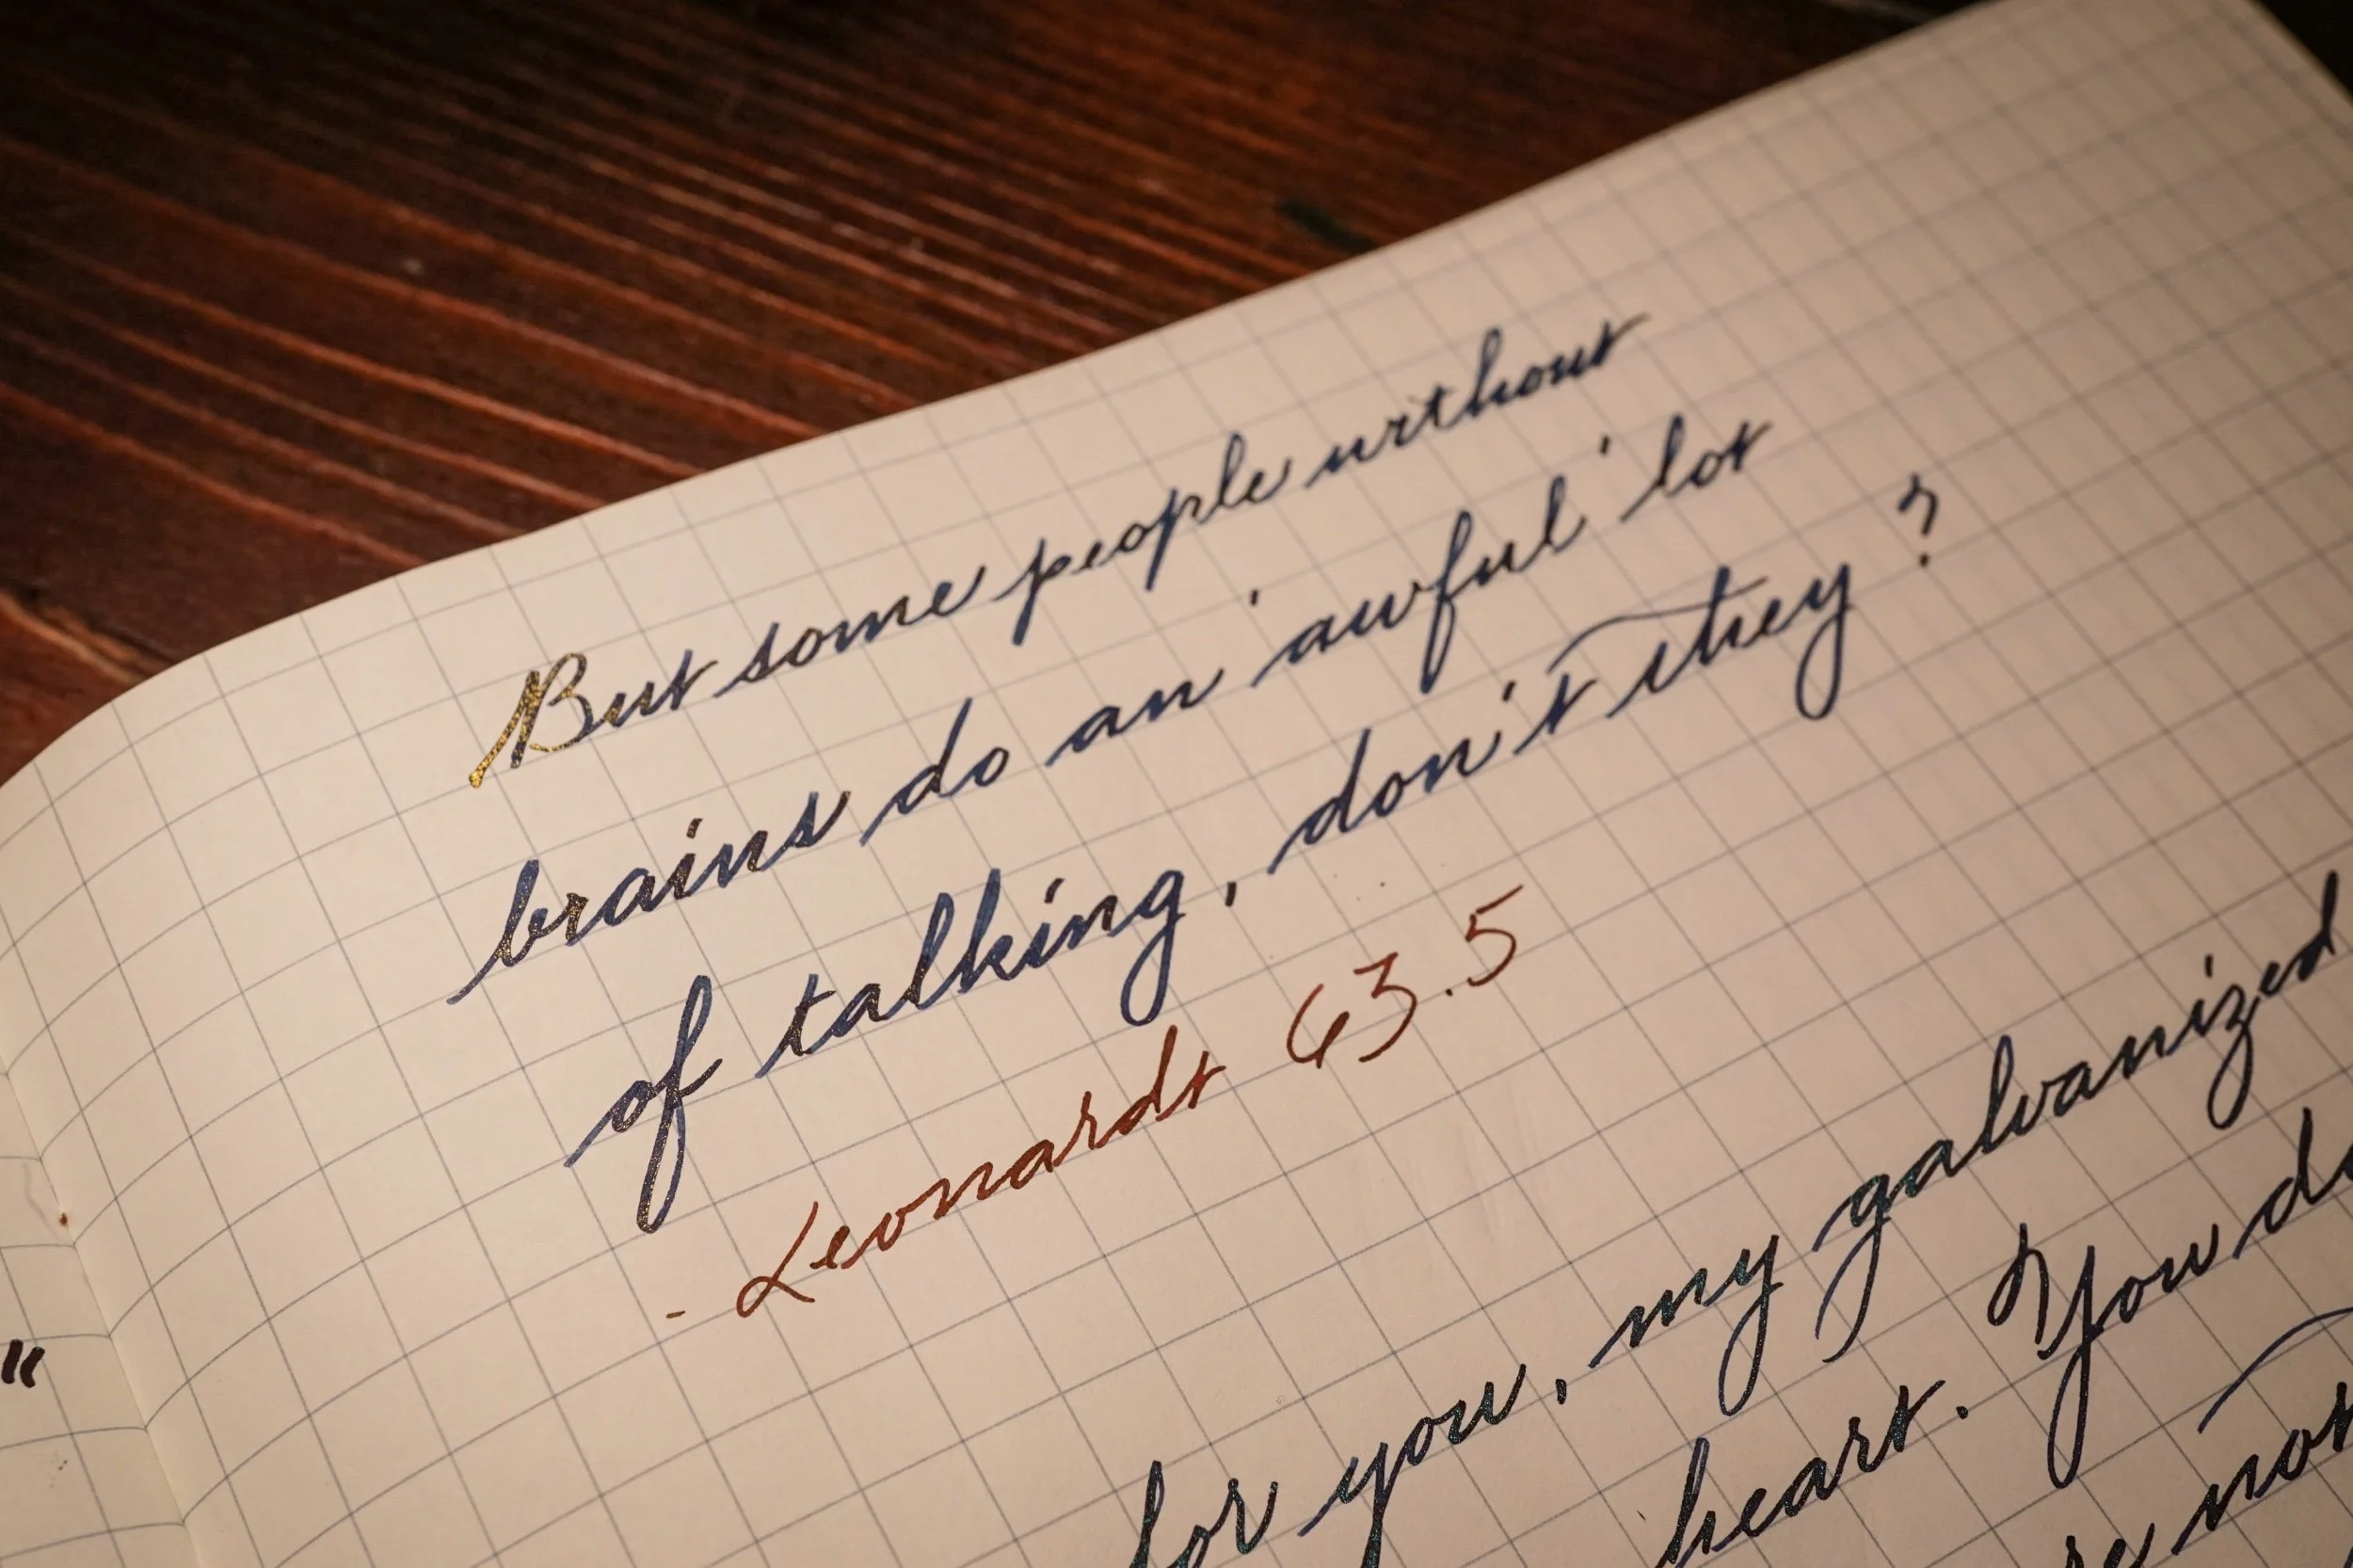 But some people without
brains do an awful lot
of talking, don't they?
- Leonardt 63.5
"
for you, my galvanized
heart. You do
not